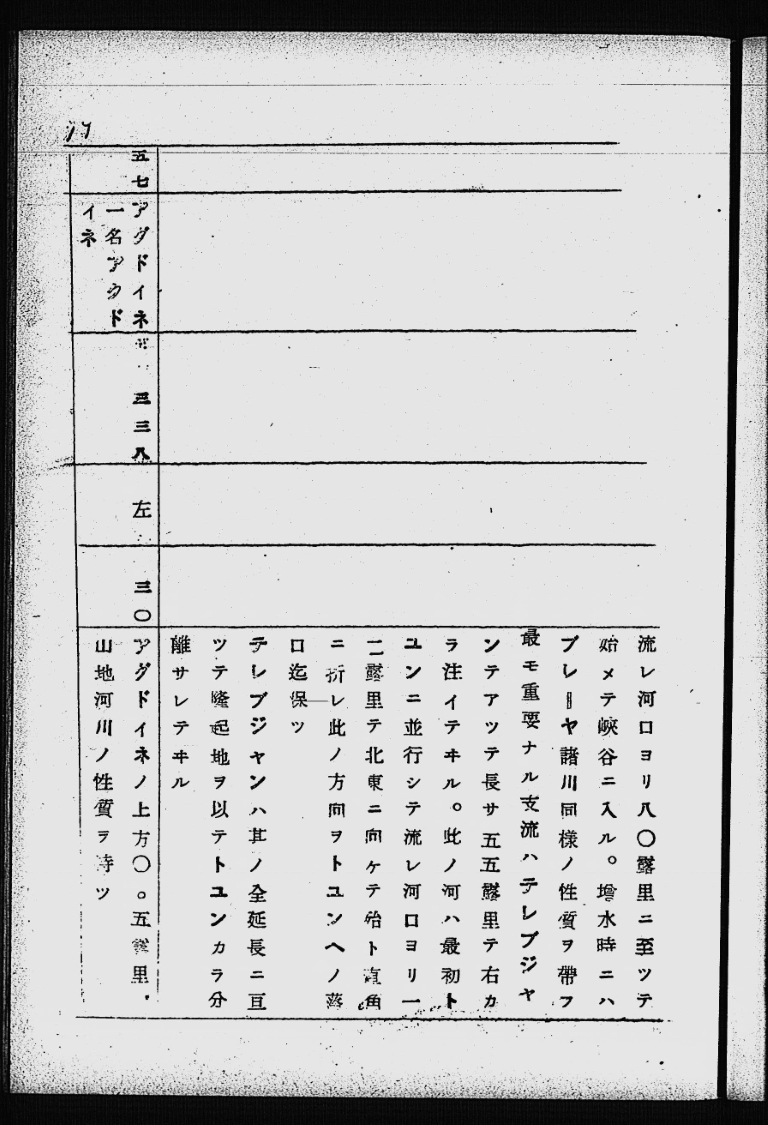 流レ河口ヨリ八〇露里ニ至ツテ
始メテ峽谷ニ入ル。增水時ニハ
ブレーヤ諸川同樣ノ性質ヲ帶フ
最モ重要ナル支流ハテレブジヤ
ンテアツテ長サ五五露里テ右カ
ラ注イテヰル。此ノ河ハ最初ト
ユンニ並行シテ流レ河口ヨリ一
二露里テ北東ニ向ケテ殆ト直角
ニ折レ此ノ方向ヲトユンヘノ落
口迄保ツ
テレブジヤンハ其ノ全延長ニ亘
ツテ隆起地ヲ以テトユンカラ分
離サレテヰル
五七
アグドイネ
一名アウド
イネ
三三八
左
三〇
アグドイネノ上方〇。五露里.
山地河川ノ性質ヲ持ツ